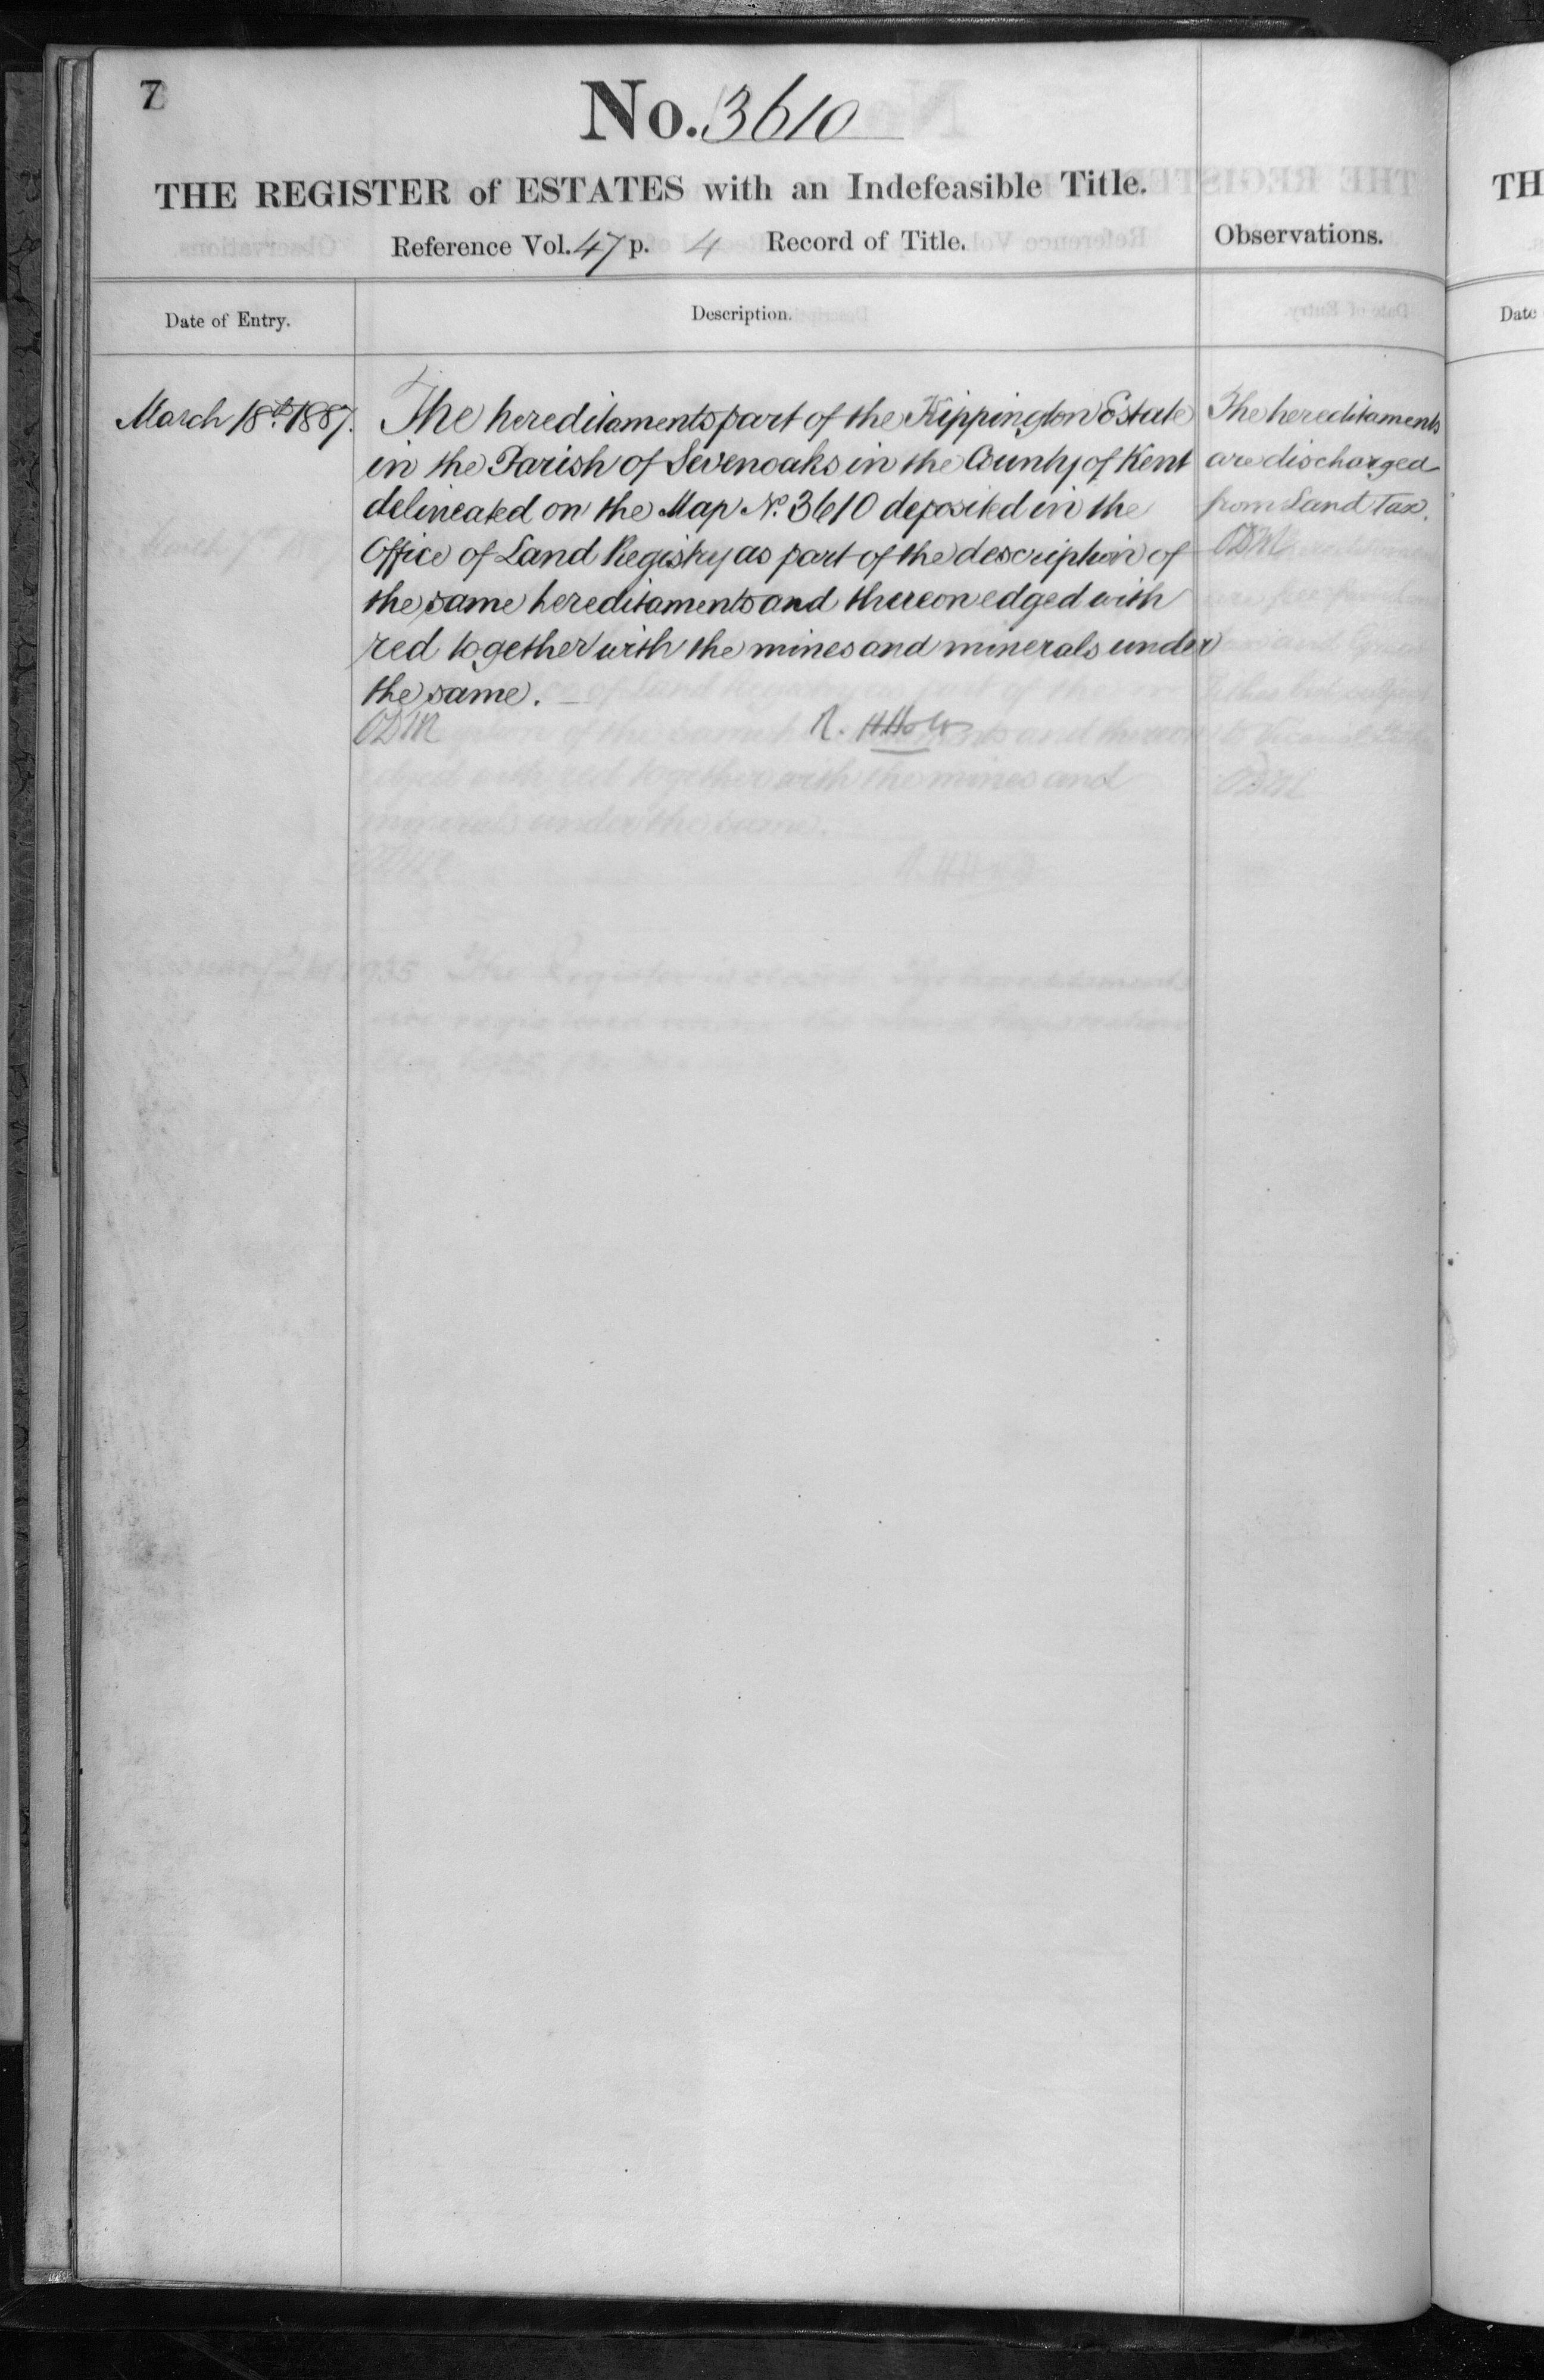 7
No. 3610
THE REGISTER of ESTATES with an Indefeasible Title.
Reference Vol. 47 p. 4 Record of Title.
Observations.
Date of Entry.
Description.
March 18th. 1887.
The hereditaments part of the Kippington Estate
in the Parish of Sevenoaks in the County of Kent
delineated on the Map No. 3610 deposited in the
Office of Land Registry as part of the description of
the same hereditaments and thereon edged with
red together with the mines and minerals under
the same.
The hereditaments
are discharged
from Land Tax.
TH
Date